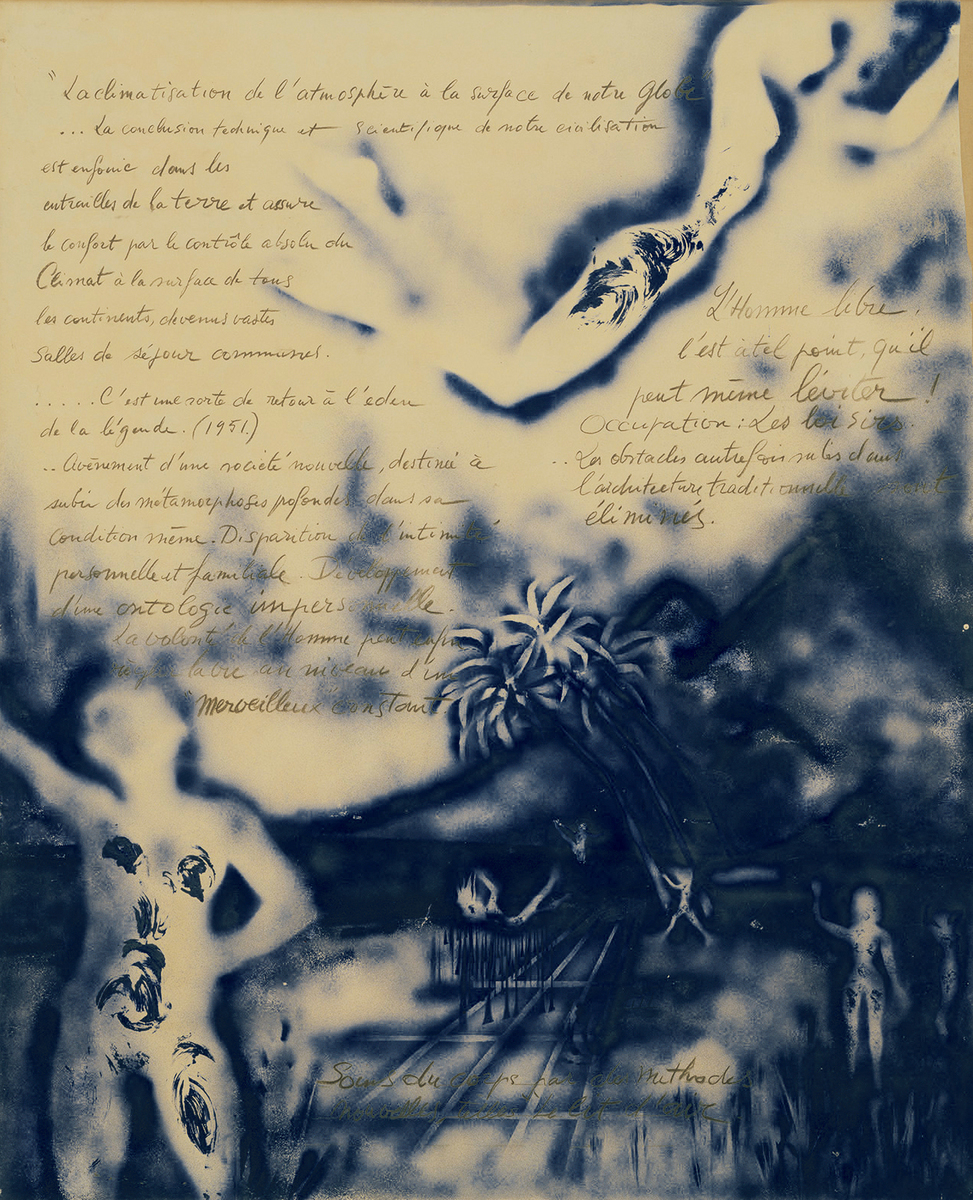 "La climatisation de l'atmosphère à la surface de notre Globe"
... La conclusion technique et scientifique de notre civilisation
est enfouie dans les
entrailles de la terre et assure
le confort par le contrôle absolu du
Climat à la surface de tous
les continents, devenus vastes
Salles de séjour communes.
..... C'est une sorte de retour à l'éden
de la légende. (1951.)
.. Avènement d'une société nouvelle, destinée à
subir des métamorphoses profondes dans sa
condition même. Disparition de l'intimité
personnelle et familiale. Développement
d'une ontologie impersonnelle.
La volonté de l'Homme peut enfin
la vie au niveau d'un
"merveilleux" constant
L'Homme libre,
l'est à tel point, qu'il
peut même léviter !
Occupation : Les loisirs.
.. Les obstacles autrefois subis dans
l'architecture traditionnelle sont
éliminés.
Soins du corps par des Méthodes